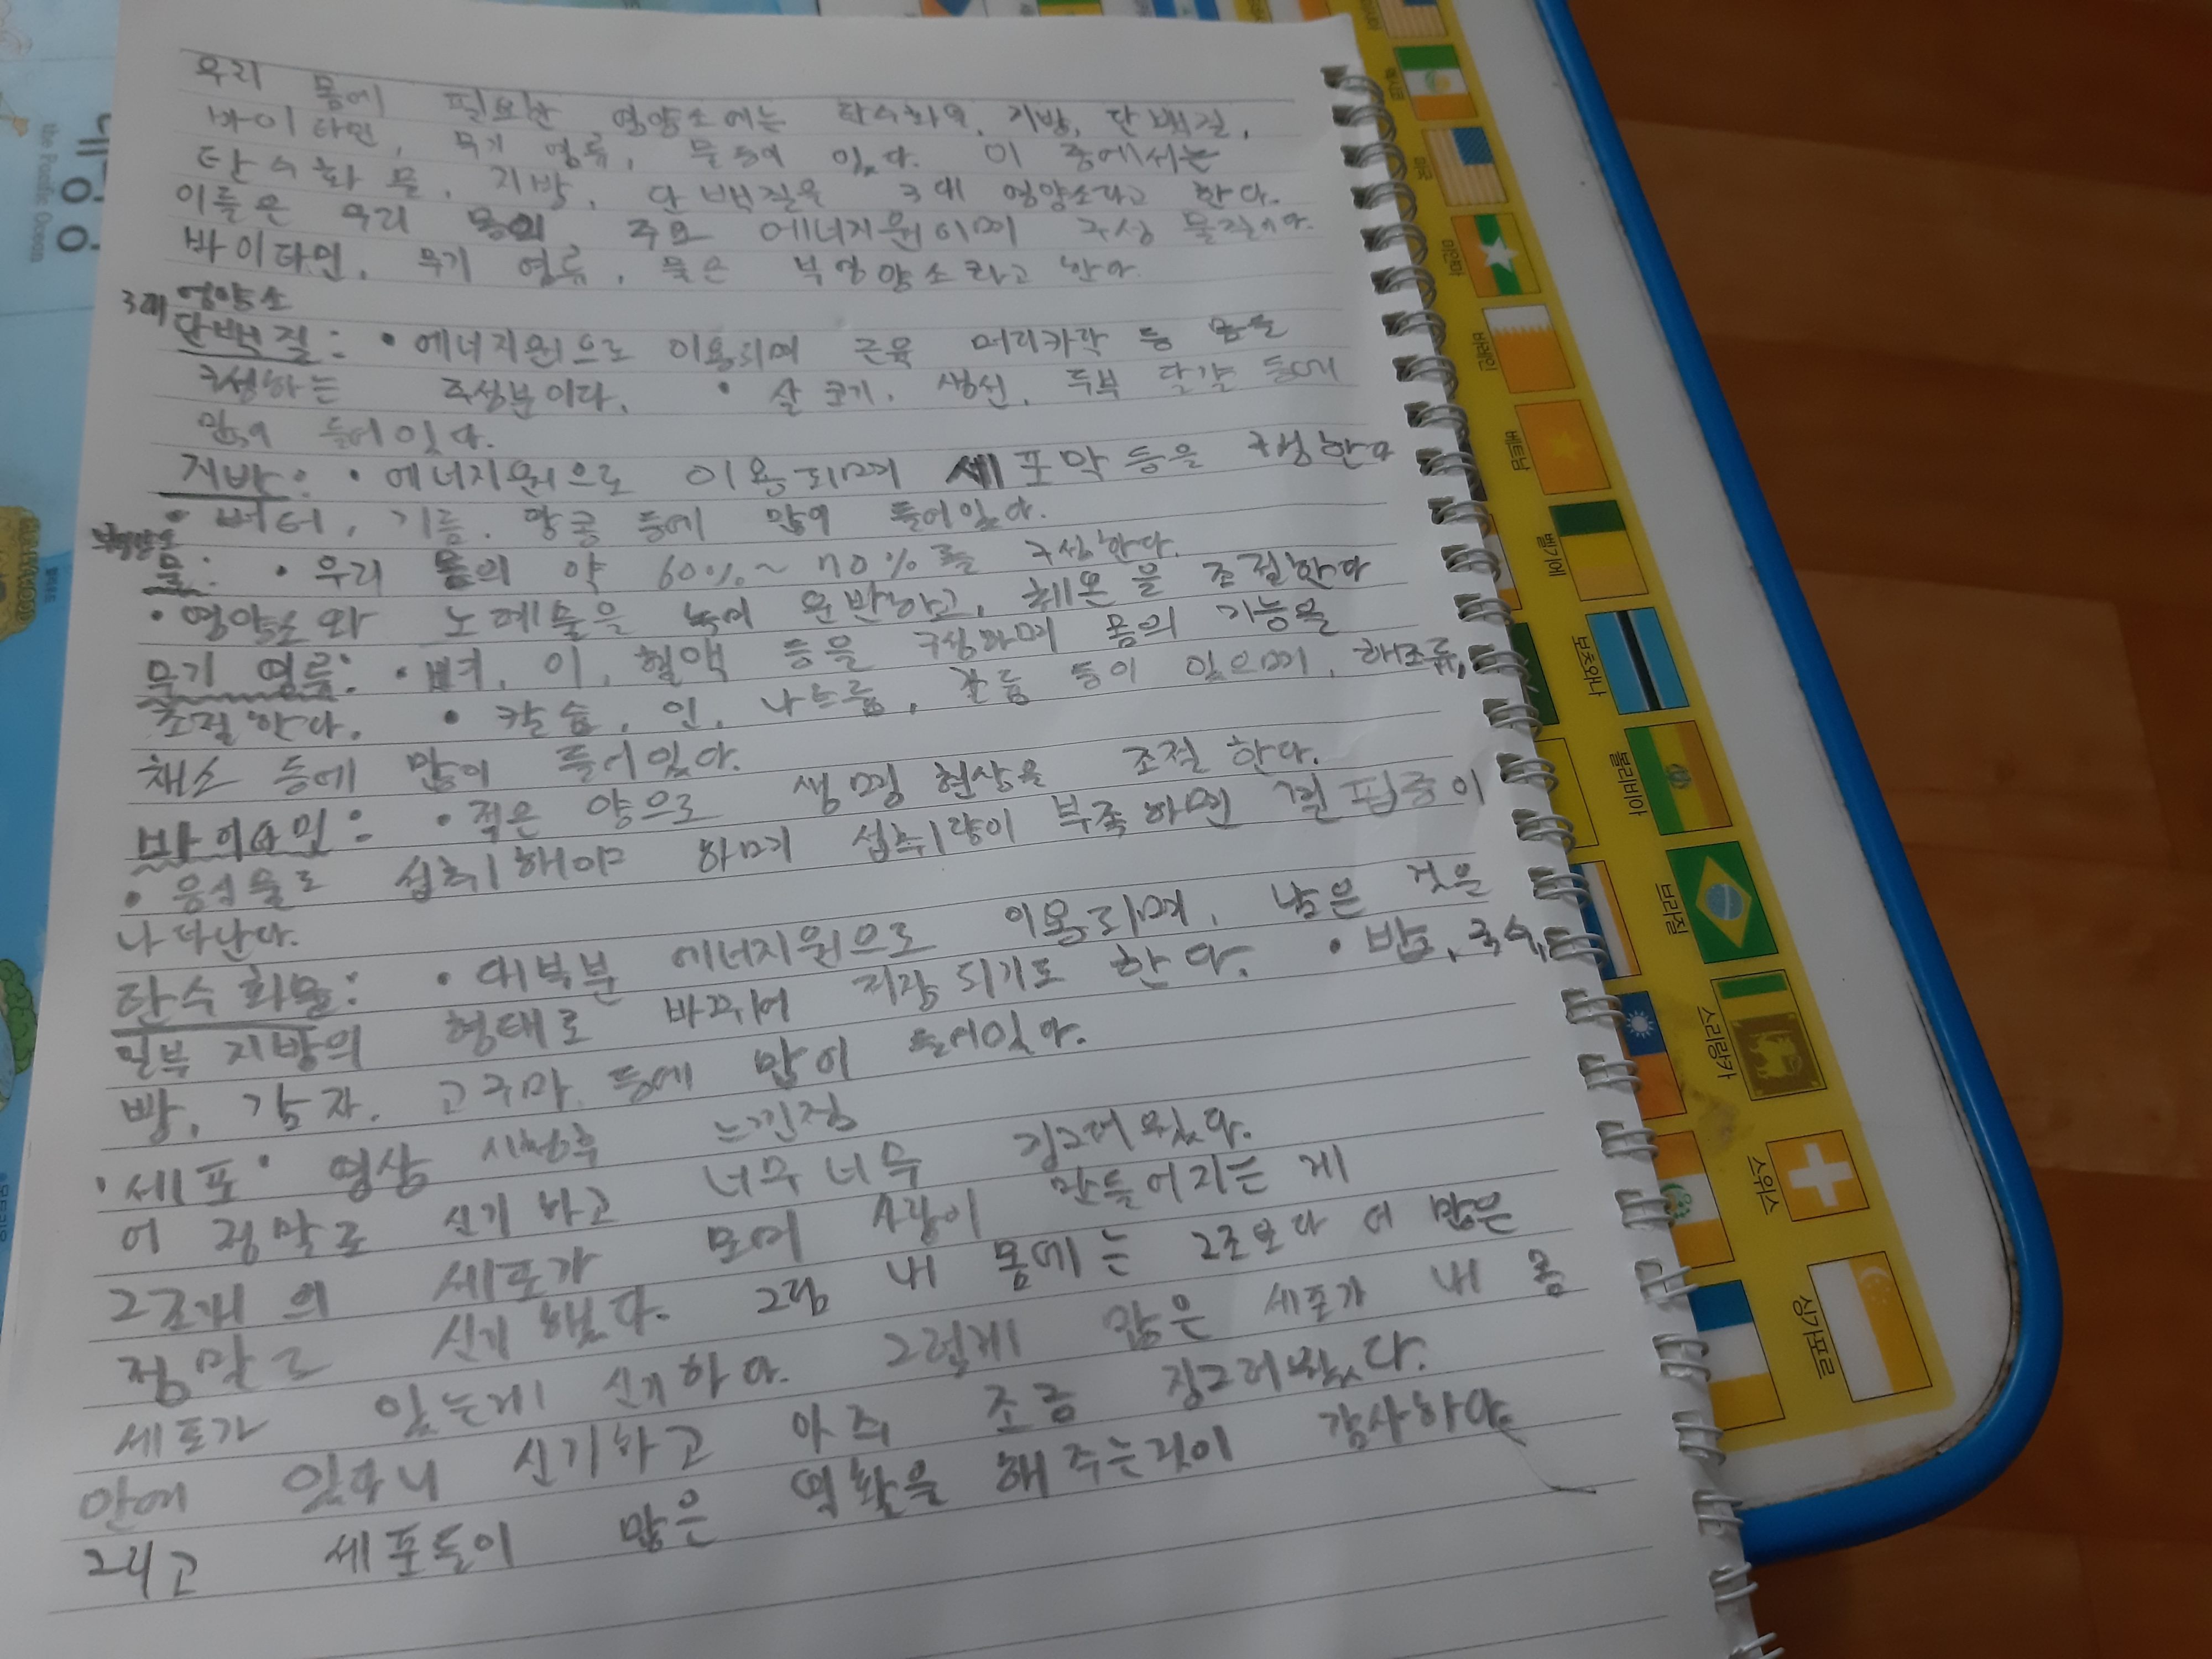 우리 몸에 필요한 영양소에는 탄수화물, 지방, 단백질,
바이타민, 무기 염류, 물 등이 있다. 이 중에서는
탄수화물, 지방, 단백질을 3대 영양소라고 한다.
이들은 우리 몸의 주요 에너지원이며 구성 물질이다.
바이타민, 무기 염류, 물은 부영양소라고 한다.
3대 영양소
단백질: • 에너지원으로 이용되며 근육 머리카락 등 몸을
구성하는 주성분이다. • 살코기, 생선, 두부 달걀 등에
많이 들어있다.
지방: • 에너지원으로 이용되며 세포막 등을 구성한다
• 버터, 기름, 땅콩 등에 많이 들어있다.
부영양소
물: • 우리 몸의 약 60%~70%를 구성한다.
• 영양소와 노폐물을 녹여 운반하고, 체온을 조절한다
무기 염류: • 뼈, 이, 혈액 등을 구성하며 몸의 기능을
조절한다. • 칼슘, 인, 나트륨, 칼륨 등이 있으며, 해조류,
채소 등에 많이 들어있다.
바이타민: • 적은 양으로 생명 현상을 조절한다.
• 음식물로 섭취해야 하며 섭취량이 부족하면 결핍증이
나타난다.
탄수화물: • 대부분 에너지원으로 이용되며, 남은 것은
일부 지방의 형태로 바뀌어 저장되기도 한다. • 밥, 국수,
빵, 감자, 고구마 등에 많이 들어있다.
'세포' 영상 시청후 느낀점
어 정말로 신기하고 너무너무 징그러웠다.
2조개의 세포가 모여 사람이 만들어지는 게
정말로 신기했다. 그럼 내 몸에는 2조보다 더 많은
세포가 있는게 신기하다. 그렇게 많은 세포가 내 몸
안에 있다니 신기하고 아주 조금 징그러웠다.
그리고 세포들이 많은 역활을 해주는것이 감사하다.
대
the Pacific Ocean
멕시코
미국
미얀마
바레인
베트남
벨기에
보츠와나
볼리비아
브라질
스리랑카
스위스
싱가포르